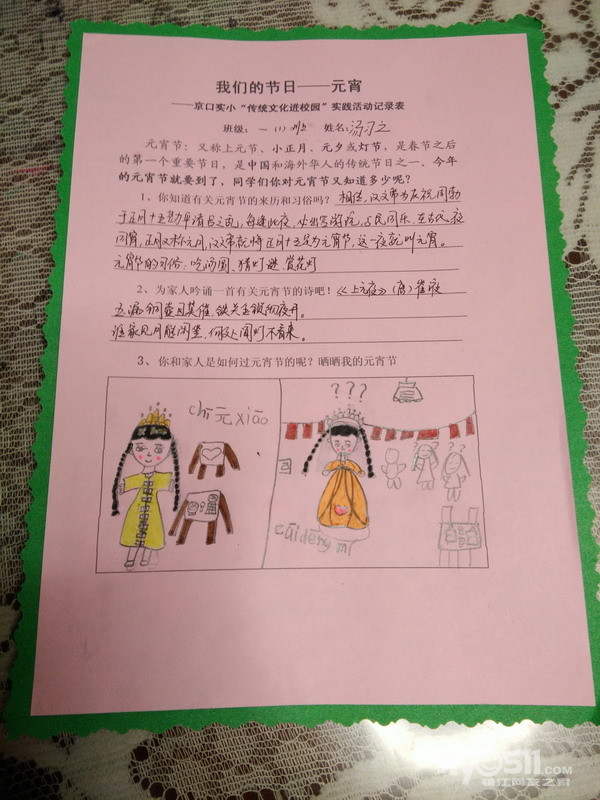 我们的节日——元宵
——京口实小“传统文化进校园”实践活动记录表
班级：一（1）班 姓名：汤
元宵节：又称上元节、小正月、元夕或灯节，是春节之后
的第一个重要节日，是中国和海外华人的传统节日之一。今年
的元宵节就要到了，同学们你对元宵节又知道多少呢？
1、你知道有关元宵节的来历和习俗吗？相传，汉文帝为庆祝周勃
于正月十五勘平诸吕之乱，每逢此夜，必出宫游玩，与民同乐，在古代，夜
同宵，正月又称元月，汉文帝就将正月十五定为元宵节，这一夜就叫元宵。
元宵节的习俗：吃汤圆、猜灯谜、赏花灯
2、为家人吟诵一首有关元宵节的诗吧！《上元夜》（唐）崔液
玉漏铜壶且莫催，铁关金锁彻夜开。
谁家见月能闲坐，何处闻灯不看来。
3、你和家人是如何过元宵节的呢？晒晒我的元宵节
chī元xiāo
???
cāi dēng mí
my0511.com
镇江网友之家